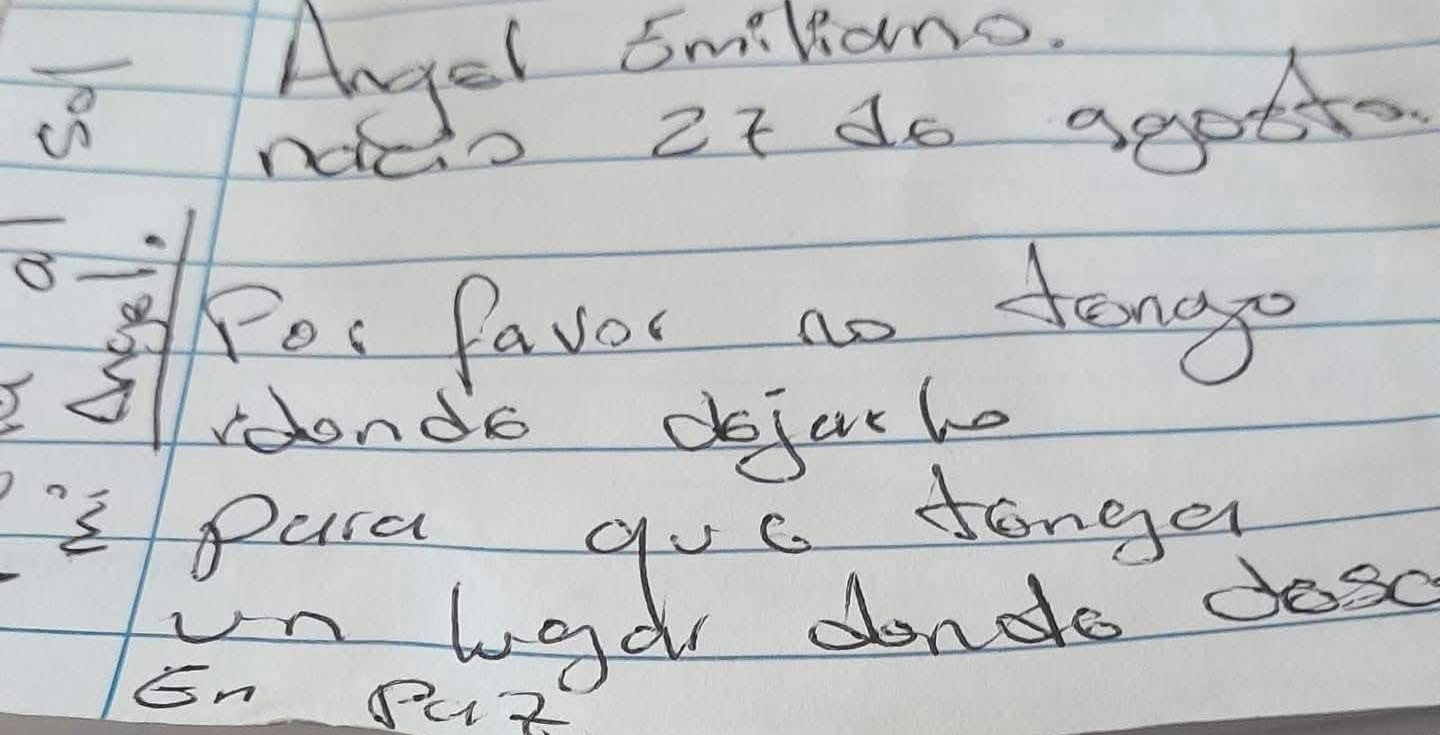 Angel Emiliano.
nacio 27 de agosto.
Por favor no tengo
donde dejarlo
para que tenga
un lugar donde desc
En Paz